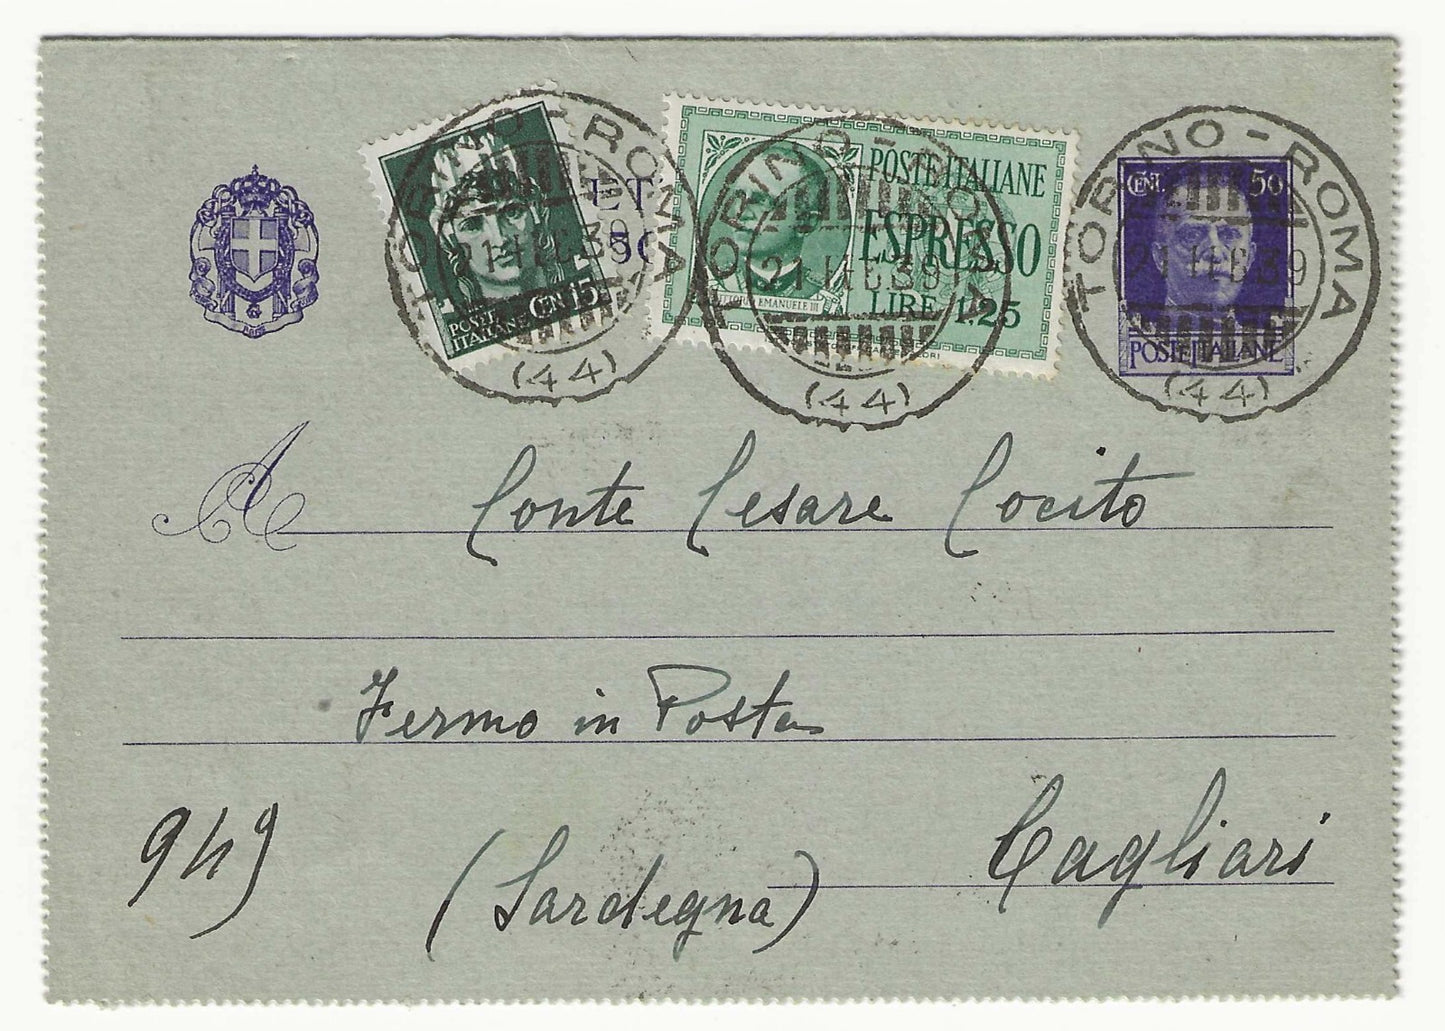 TORINO - ROMA
21.11.39
(44)
POSTE
ITALIANE
CEN. 15
TORINO - ROMA
21.11.39
(44)
POSTE ITALIANE
ESPRESSO
LIRE 1.25
VITTORIO EMANUELE III
TORINO - ROMA
21.11.39
(44)
CENT. 50
POSTE ITALIANE
A Conte Cesare Cocito
Fermo in Posta
Cagliari
949
(Sardegna)